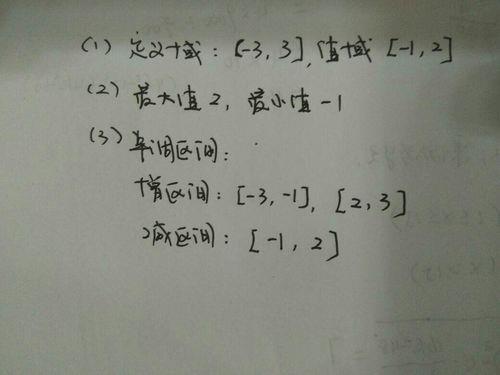 (1) 定义域: [-3, 3], 值域 [-1, 2]
(2) 最大值 2, 最小值 -1
(3) 单调区间:
增区间: [-3, -1], [2, 3]
减区间: [-1, 2]